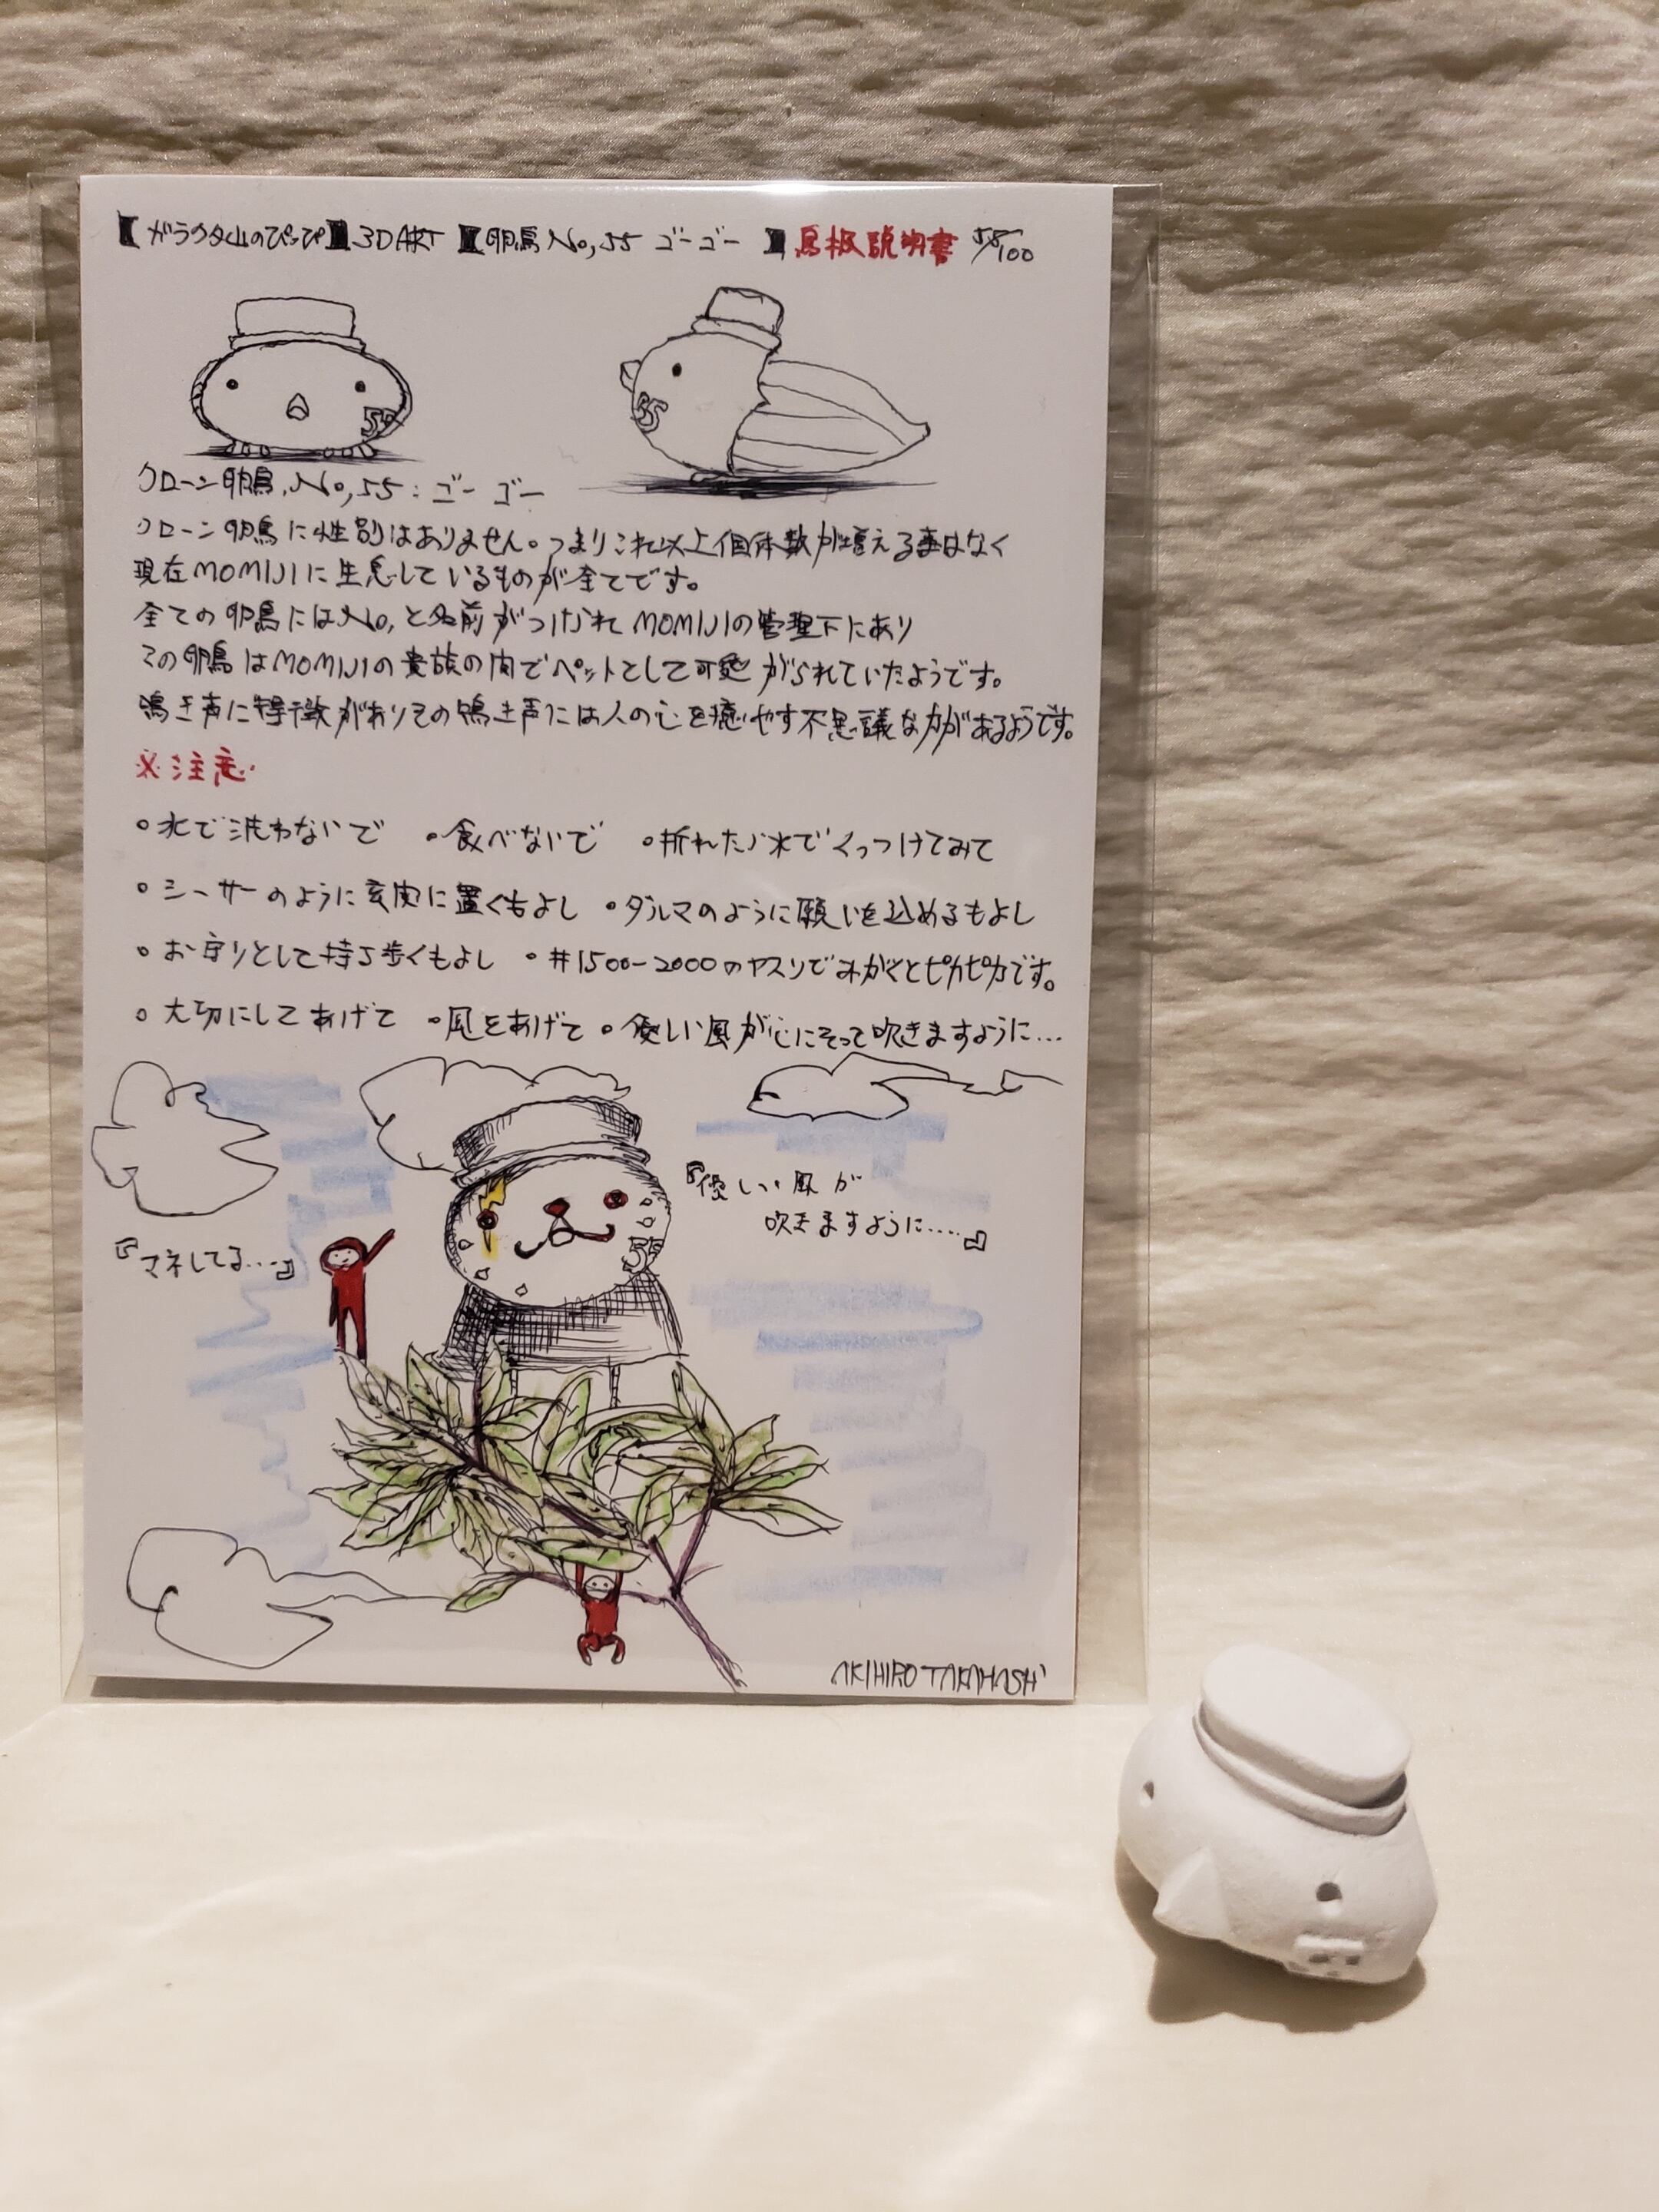 【ガラクタ山のぴっぴ】3D ART【卵鳥 No,55 ゴーゴー】鳥扱説明書 55/100
55
55
クローン卵鳥.No,55:ゴーゴー
クローン卵鳥に性別はありません。つまりこれ以上個体数が増える事はなく
現在MOMIJIに生息しているものが全てです。
全ての卵鳥にはNo,と名前がつけられMOMIJIの管理下にあり
この卵鳥はMOMIJIの貴族の間でペットとして可愛がられていたようです。
鳴き声に特徴がありその鳴き声には人の心を癒やす不思議な力があるようです。
※注意
・水で洗わないで ・食べないで ・折れたら水でくっつけてみて
・シーサーのように玄関に置くもよし ・ダルマのように願いを込めるもよし
・お守りとして持ち歩くもよし ・#1500-2000のヤスリでみがくとピカピカです。
・大切にしてあげて ・風をあげて ・優しい風が心にそって吹きますように…
『優しい風が
吹きますように....』
『マネしてる...』
55
AKIHIRO TAKAHASHI